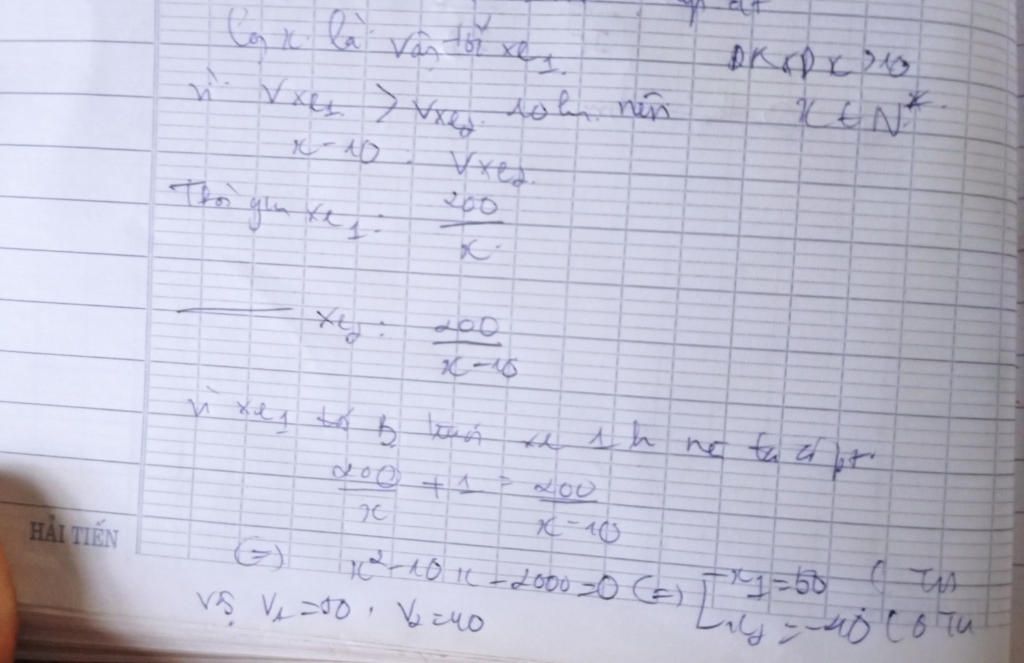 Gọi x là vận tốc xe1. ĐKXĐ x > 10
vì Vxe1 > Vxe2 10km nên x ∈ N*.
x - 10 : Vxe2.
Thời gian xe1: 200/x.
xe2: 200/(x-10)
vì xe1 tới B xe 1h nên ta có pt
200/x + 1 = 200/(x-10)
HẢI TIẾN
(=) x² - 10x - 2000 = 0 (=) [x1 = 50 (TM
x2 = -40 (
Vậy V1 = 50, V2 = 40